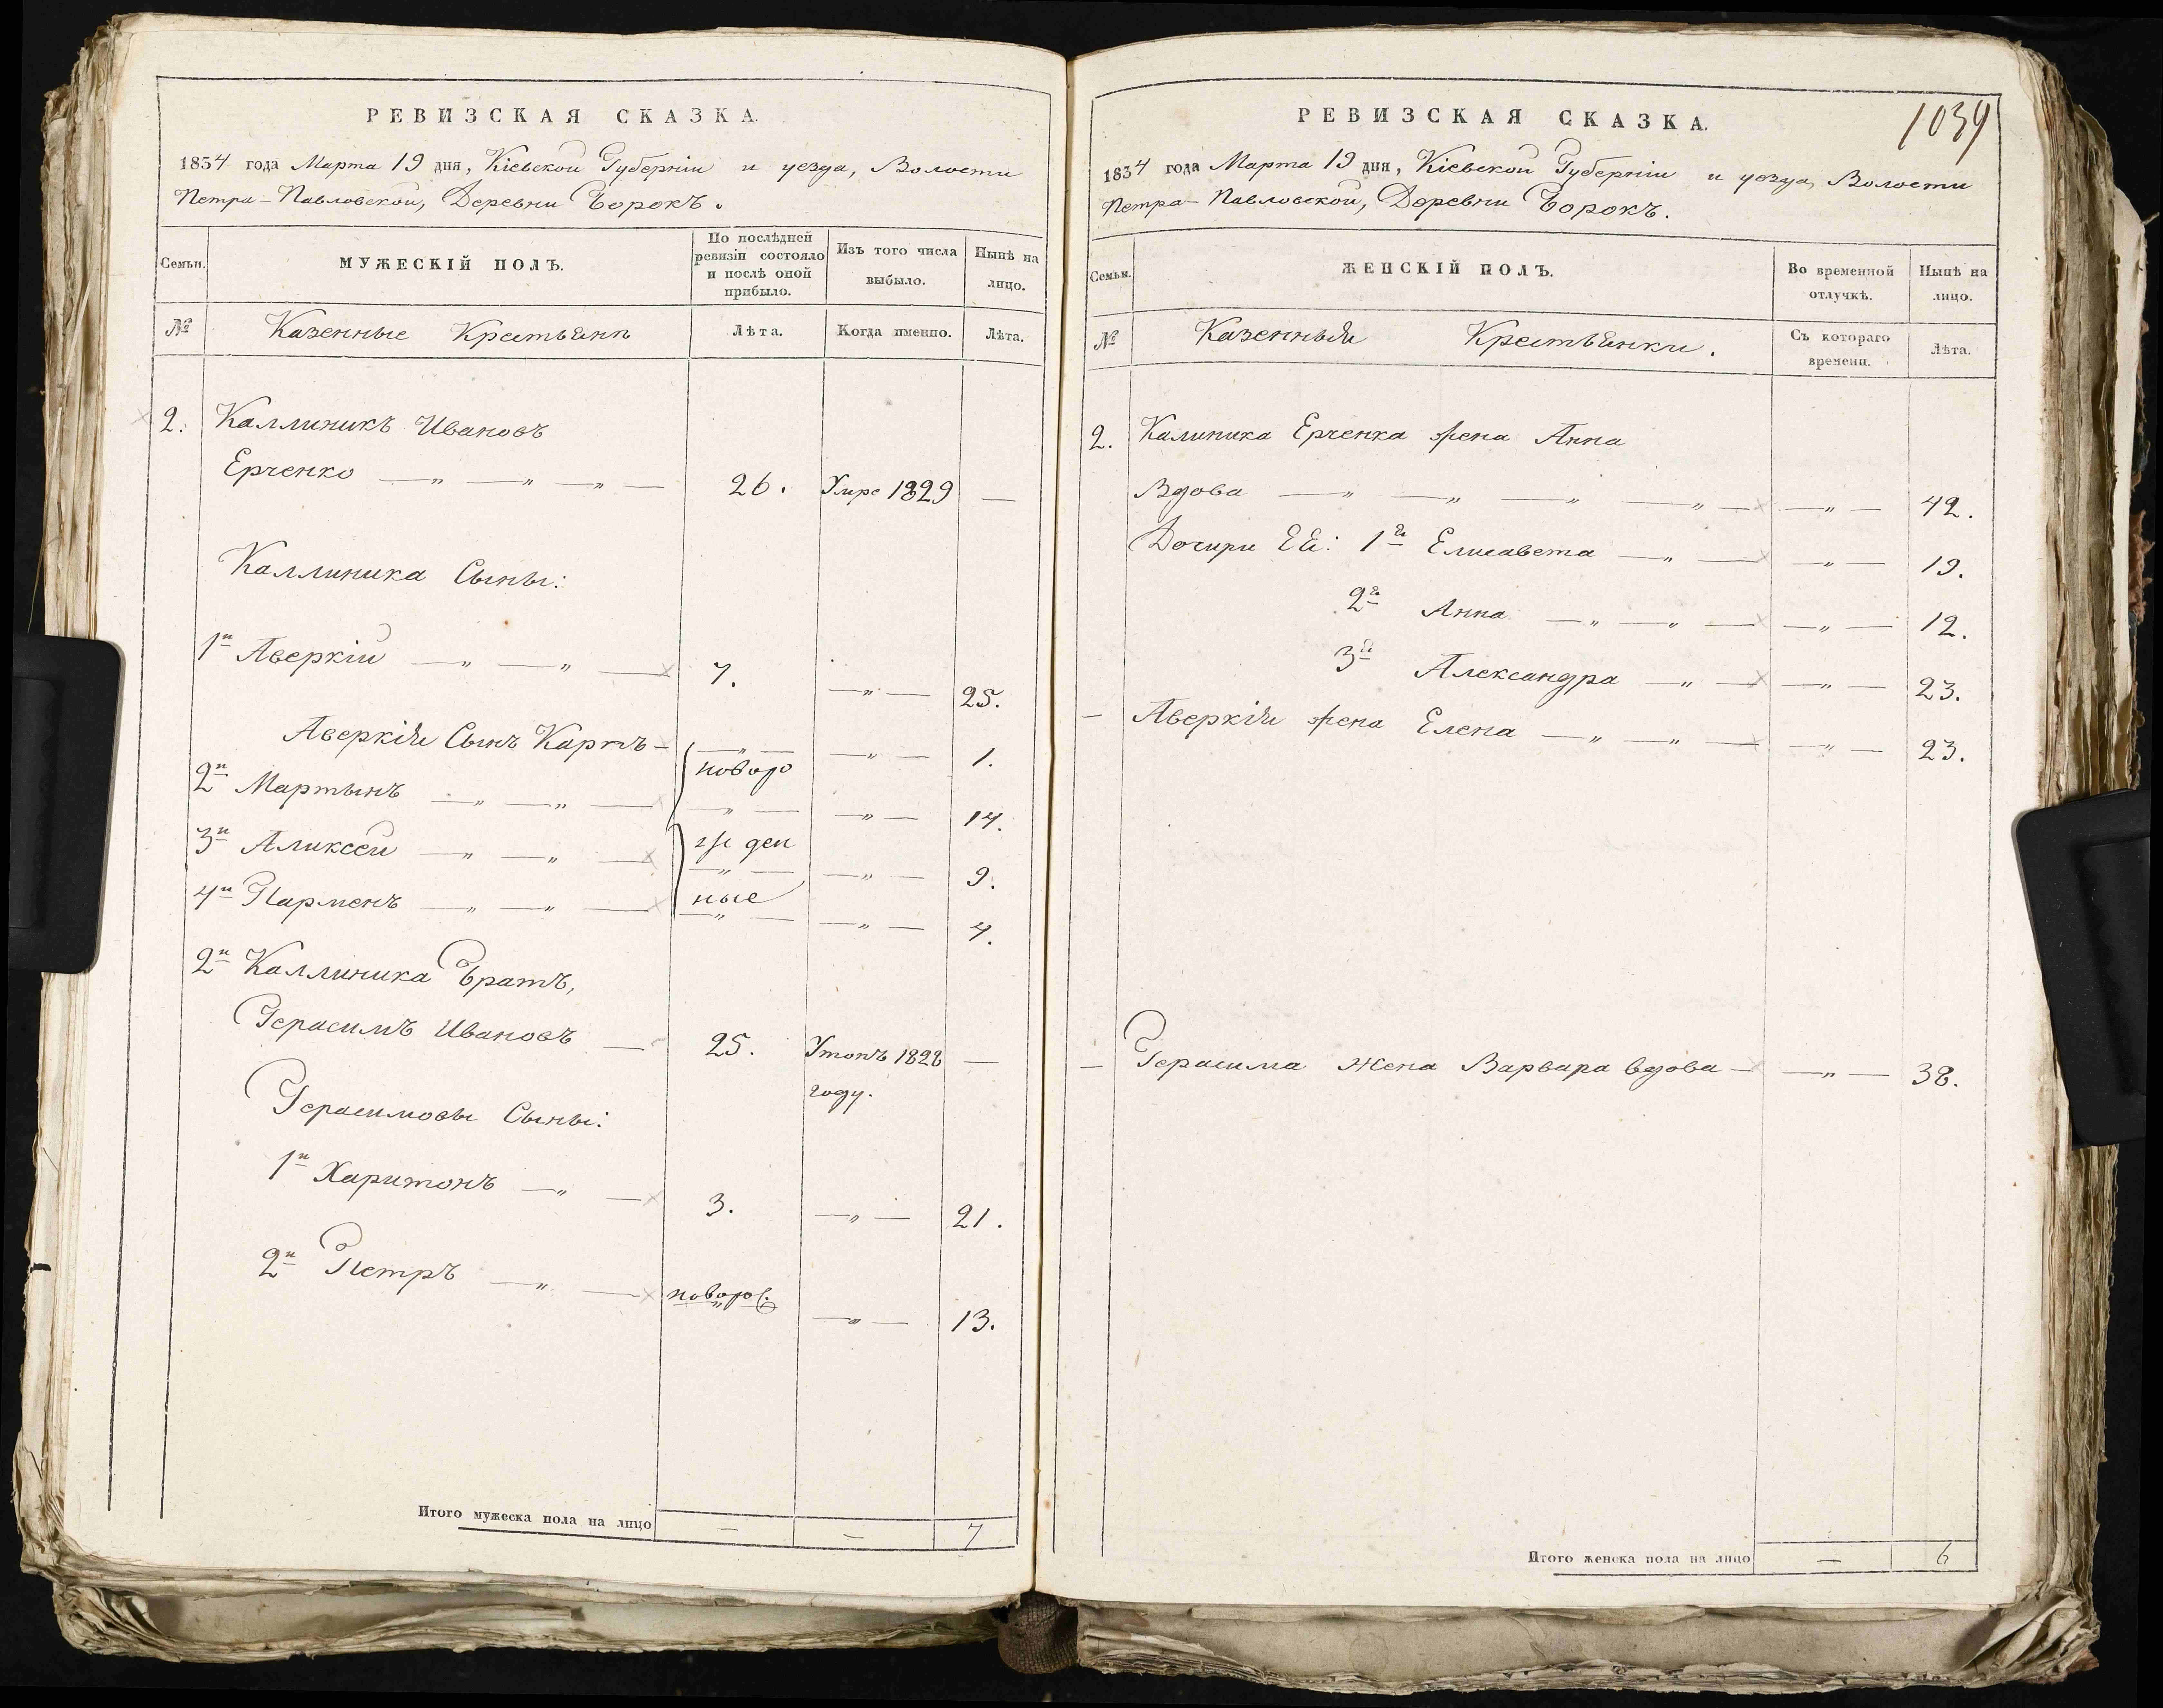 РЕВИЗСКАЯ СКАЗКА.
1834 года Марта 19 дня, Кіевской Губерніи и уезда, Волости
Петра-Павловской, Деревни Борокъ.
Семьи.
МУЖЕСКІЙ ПОЛЪ.
По послѣдней ревизіи состояло и послѣ оной прибыло.
Изъ того числа выбыло.
Нынѣ на лицо.
№
Казенные Крестьяни
Лѣта.
Когда именно.
Лѣта.
2. Каллиникъ Ивановъ
Ерченко — „ — „ — „ — 26. Умре 1829 —
Каллиника Сыны:
1й Аверкій — „ — „ — 7. — „ — 25.
Аверкія Сынъ Карпъ — — „ — — „ — 1.
2й Мартынъ — „ — „ — новоро — „ — 14.
3й Аликсей — „ — „ — жден — „ — 9.
4й Парменъ — „ — „ — ные — „ — 4.
2й Каллиника Братъ,
Герасимъ Ивановъ — 25. Утопъ 1828 —
году.
Герасимовы Сыны:
1й Харитонъ — „ — 3. — „ — 21.
2й Петръ — „ — новорож. — „ — 13.
Итого мужеска пола на лицо — — 7
1039
РЕВИЗСКАЯ СКАЗКА.
1834 года Марта 19 дня, Кіевской Губерніи и уезда, Волости
Петра-Павловской, Деревни Борокъ.
Семьи.
ЖЕНСКІЙ ПОЛЪ.
Во временной отлучкѣ.
Нынѣ на лицо.
№
Казенныя Крестьянки.
Съ котораго времени.
Лѣта.
2. Калиника Ерченка жена Анна
Вдова — „ — „ — „ — „ — — „ — 42.
Дочири Её: 1я Елисавета — „ — — „ — 19.
2я Анна — „ — „ — — „ — 12.
3я Александра — „ — — „ — 23.
— Аверкія жена Елена — „ — „ — — „ — 23.
— Герасима жена Варвара вдова — — „ — 38.
Итого женска пола на лицо — 6